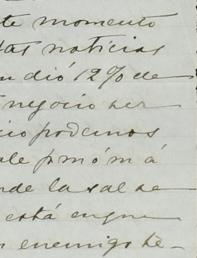 te momento
tas noticias
dió 12% de
negocio ser
cio podemos
ale á
nde la sal se
está en que
enemigo te-